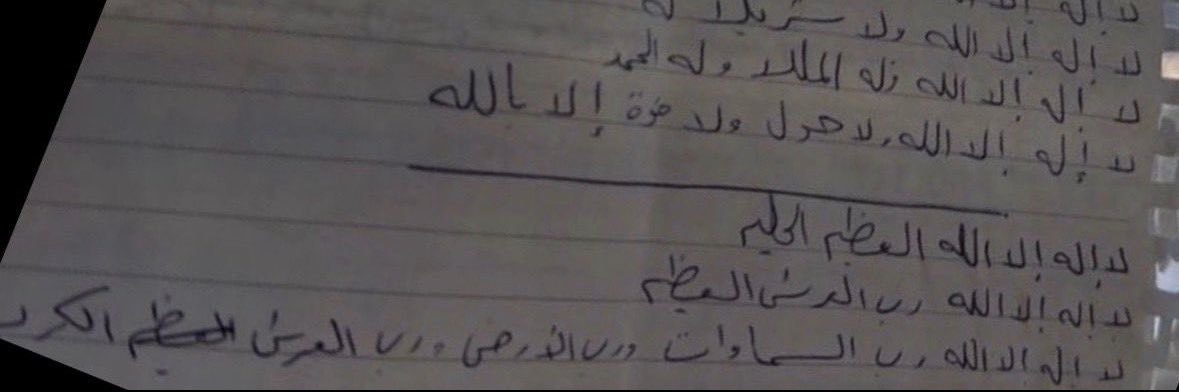 لا إله إلا
لا إله إلا الله ولا شريك له
لا إله إلا الله له الملك وله الحمد
لا إله إلا الله، ولا حول ولا قوة إلا بالله
لا إله إلا الله العظيم الحليم
لا إله إلا الله رب العرش العظيم
لا إله إلا الله رب السماوات ورب الأرض ورب العرش العظيم